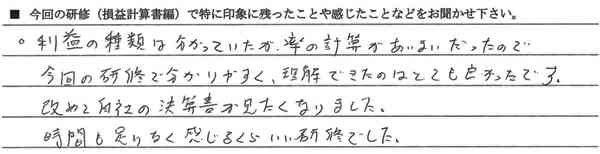 ■ 今回の研修（損益計算書編）で特に印象に残ったことや感じたことなどをお聞かせ下さい。
。利益の種類は分かっていたが、率の計算があいまいだったので
今回の研修で分かりやすく、理解できたのはとても良かったです。
改めて自社の決算書が見たくなりました。
時間も足りなく感じるくらいいい研修でした。